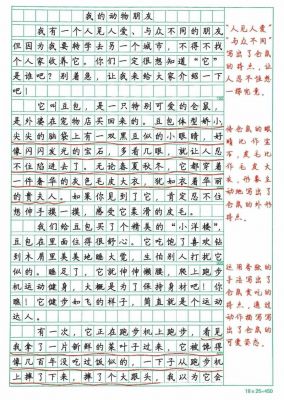 我的动物朋友
我有一个人见人爱、与众不同的朋友
但因为我要转学去另一个城市，不得不找
个人家收养它。你们一定很想知道“它”
是谁吧？别着急，让我来给大家介绍一下
吧！
它叫豆包，是一只特别可爱的仓鼠，
是外婆在宠物店买回来的。豆包体型娇小
尖尖的脑袋上有一双黑豆似的小眼睛，好
像闪闪发光的宝石，多看几眼，就让人忍
不住陷进去了。无论春夏秋冬，它都穿着
一件奢华的灰色毛皮大衣，犹如衣着华丽
的贵夫人。如果你见到了它，肯定忍不住
想伸手摸一摸，感受它柔滑的皮毛。
我们给豆包买了个精美的“小洋楼”，
豆包在里面住得很舒心。它吃饱了喜欢钻
到木屑里美美地睡大觉，生怕别人打扰它
似的。睡足了，它就伸伸懒腰，爬上跑步
机运动健身，大概是为了保持身材吧！你
瞧！它健步如飞的样子，简直就是个运动
达人。
有一次，它正在跑步机上跑步，看见
我拿了一片新鲜的菜叶子过来，它被馋得
像几百年没吃过饭似的，一下子从跑步机
上摔了下来，摔了个大跟头，我以为它会
“人见人爱”
“与众不同”
写出了仓鼠
的特点，让
人忍不住想
一睹究竟。
将仓鼠的眼
睛比作宝
石，皮毛比
作毛皮大
衣，形象生
动地写出了
仓鼠的外形
特点。
运用夸张的
手法写出了
仓鼠贪吃的
特点，通过
动作描写写
出了仓鼠的
可爱姿态。
18×25=450